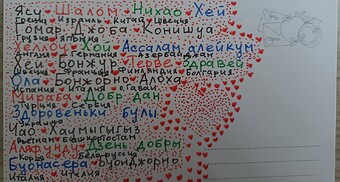 Ясу Шалом Нихао Хей
Греция Израиль Китай Швеция
Гомар Джоба Конишуа
Грузия Япония
Хеллоу Хой Ассалам алейкум
Германия Азербайджан
Хей Бонжур Терве Здравей
Швеция Франция Финляндия Болгария
Ола Бонжорно Алоха
Испания Италия о.Гавайи
Мираба Добр дан
Турция Сербия
Здоровеньки булы
Украина
Чао Хаумыгигиз
Вьетнам Башкортостан
Дзень добры
Корея Белоруссия
Буонасера Буонджорно
Италия Италия